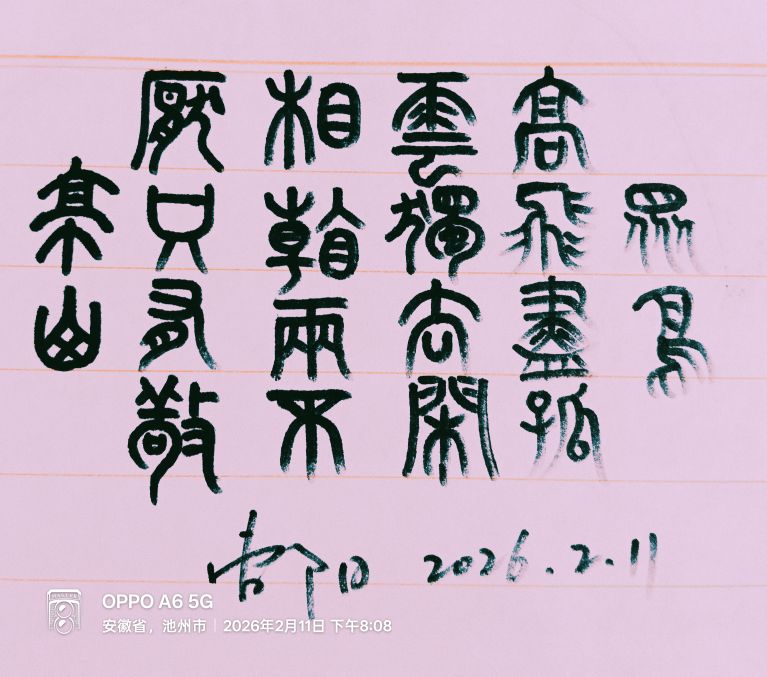 眾鳥
高飛盡孤
雲獨去閑
相看兩不
厭只有敬
亭山
2026.2.11
OPPO A6 5G
安徽省，池州市｜2026年2月11日 下午8:08